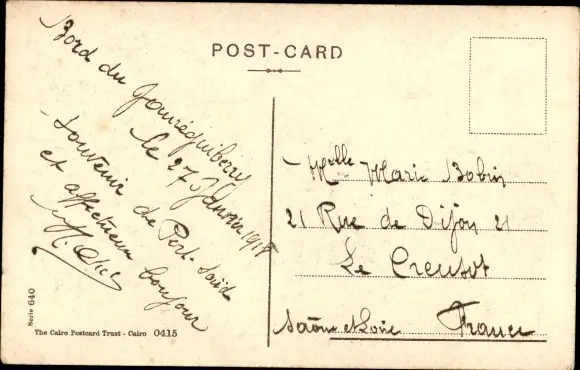 POST-CARD
Bord du Jauréguiberry
le 27 Janvier 1918
Souvenir de Port-Saïd
et affectueux bonjour
Melle Marie Bobin
21 Rue de Dijon 21
Le Creusot
Saône et Loire France
Serie 640
The Cairo Postcard Trust - Cairo 0415